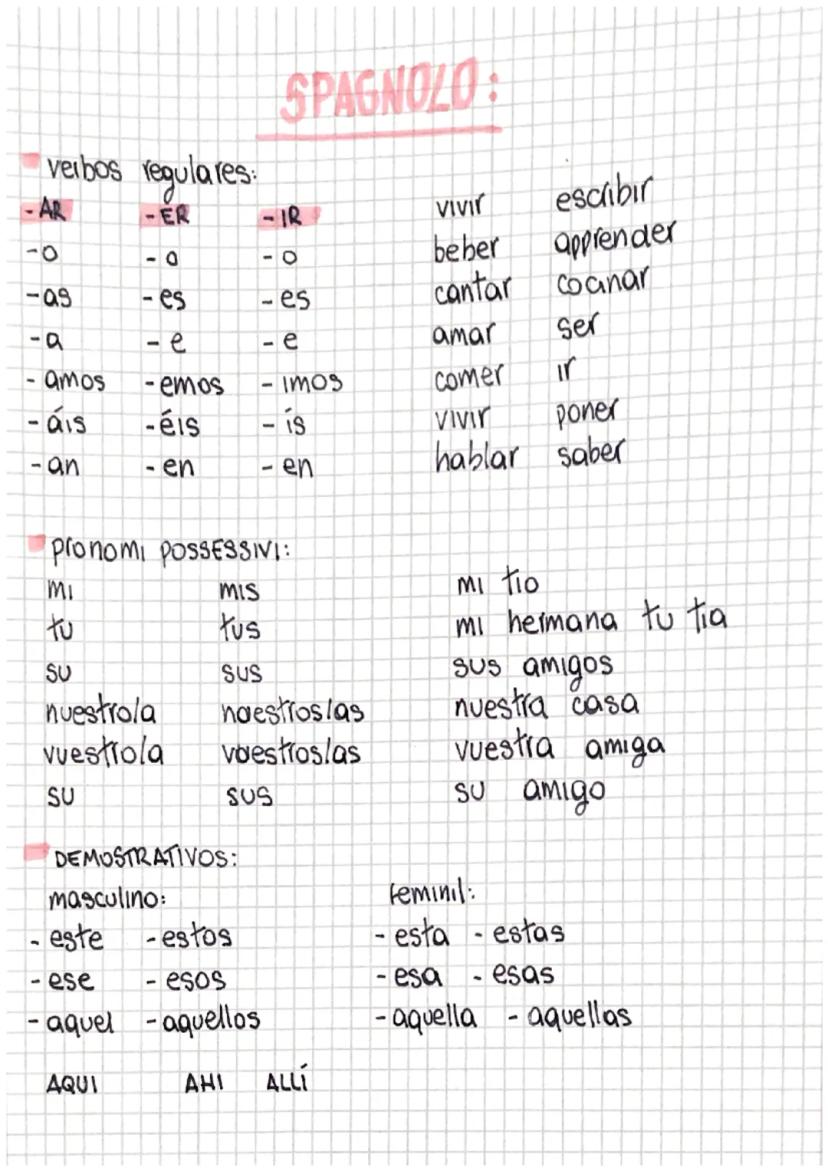 SPAGNOLO:
verbos regulares:
-AR -ER -IR vivir escribir
-o -o -o beber apprender
-as -es -es cantar cocinar
-a -e -e amar ser
-amos -emos -imos comer ir
-áis -éis -ís vivir poner
-an -en -en hablar saber
pronomi POSSESSIVI:
mi mis mi tio
tu tus mi hermana tu tia
su sus sus amigos
nuestro/a noestros/as nuestra casa
vuestro/a voestros/as vuestra amiga
su sus su amigo
DEMOSTRATIVOS:
masculino: feminil:
-este -estos -esta -estas
-ese -esos -esa -esas
-aquel -aquellos -aquella -aquellas
AQUI AHI ALLÍ